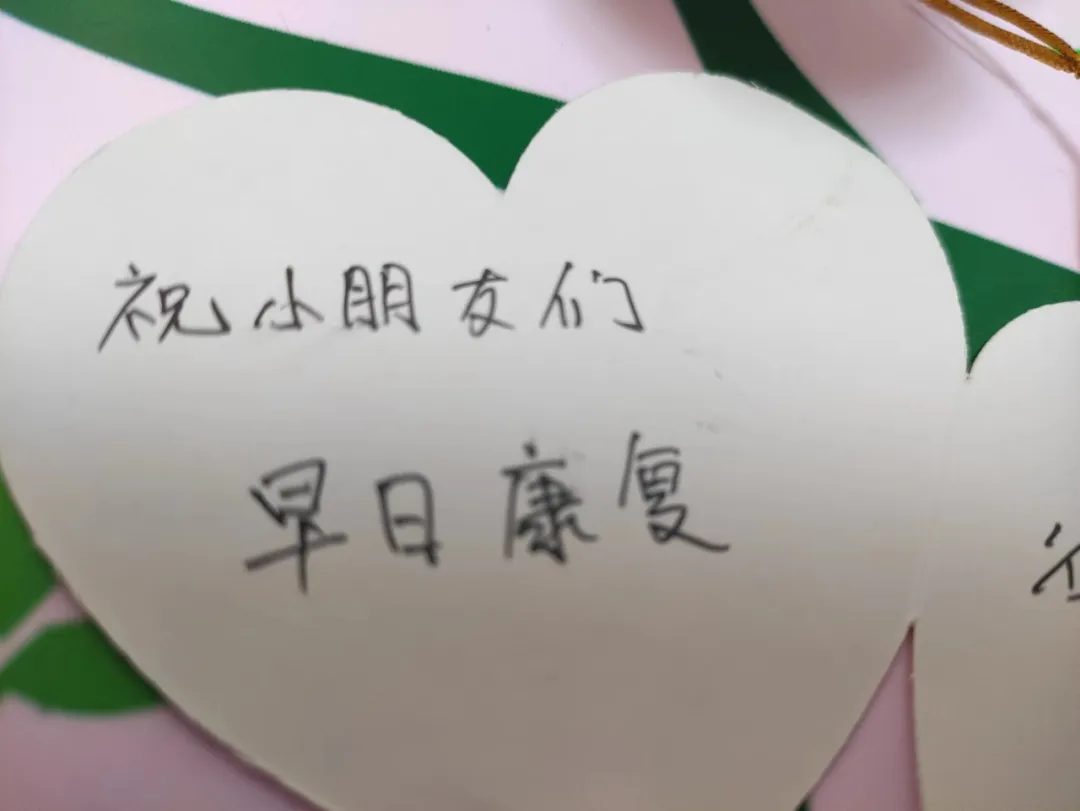 祝小朋友们
早日康复